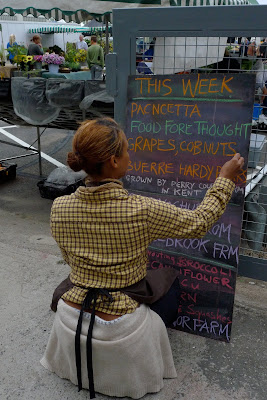 THIS WEEK
PAENCETTA
FOOD FORE THOUGHT
GRAPES, COBNUTS
BUERRE HARDY P
GROWN BY PERRY COU
IN KENT
HU
OM
EBROOK FRM
BROCCOLI
FLOWER
OR FARM